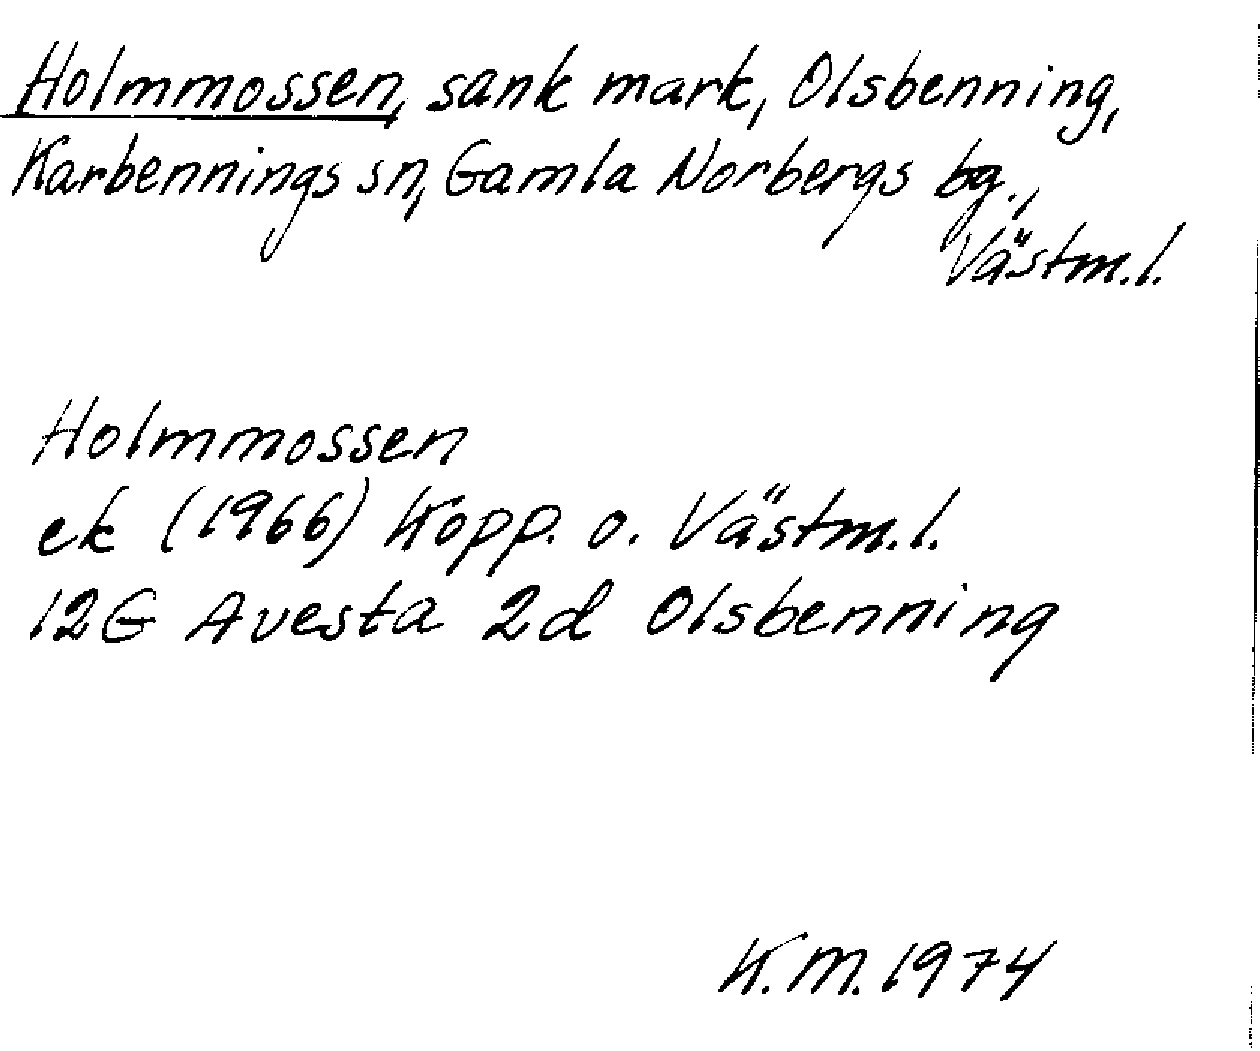 Holmmossen, sank mark, Olsbenning,
Karbennings sn, Gamla Norbergs bg.,
Västm.l.
Holmmossen
ek (1966) Kopp. o. Västm.l.
12G Avesta 2d Olsbenning
K.M. 1974